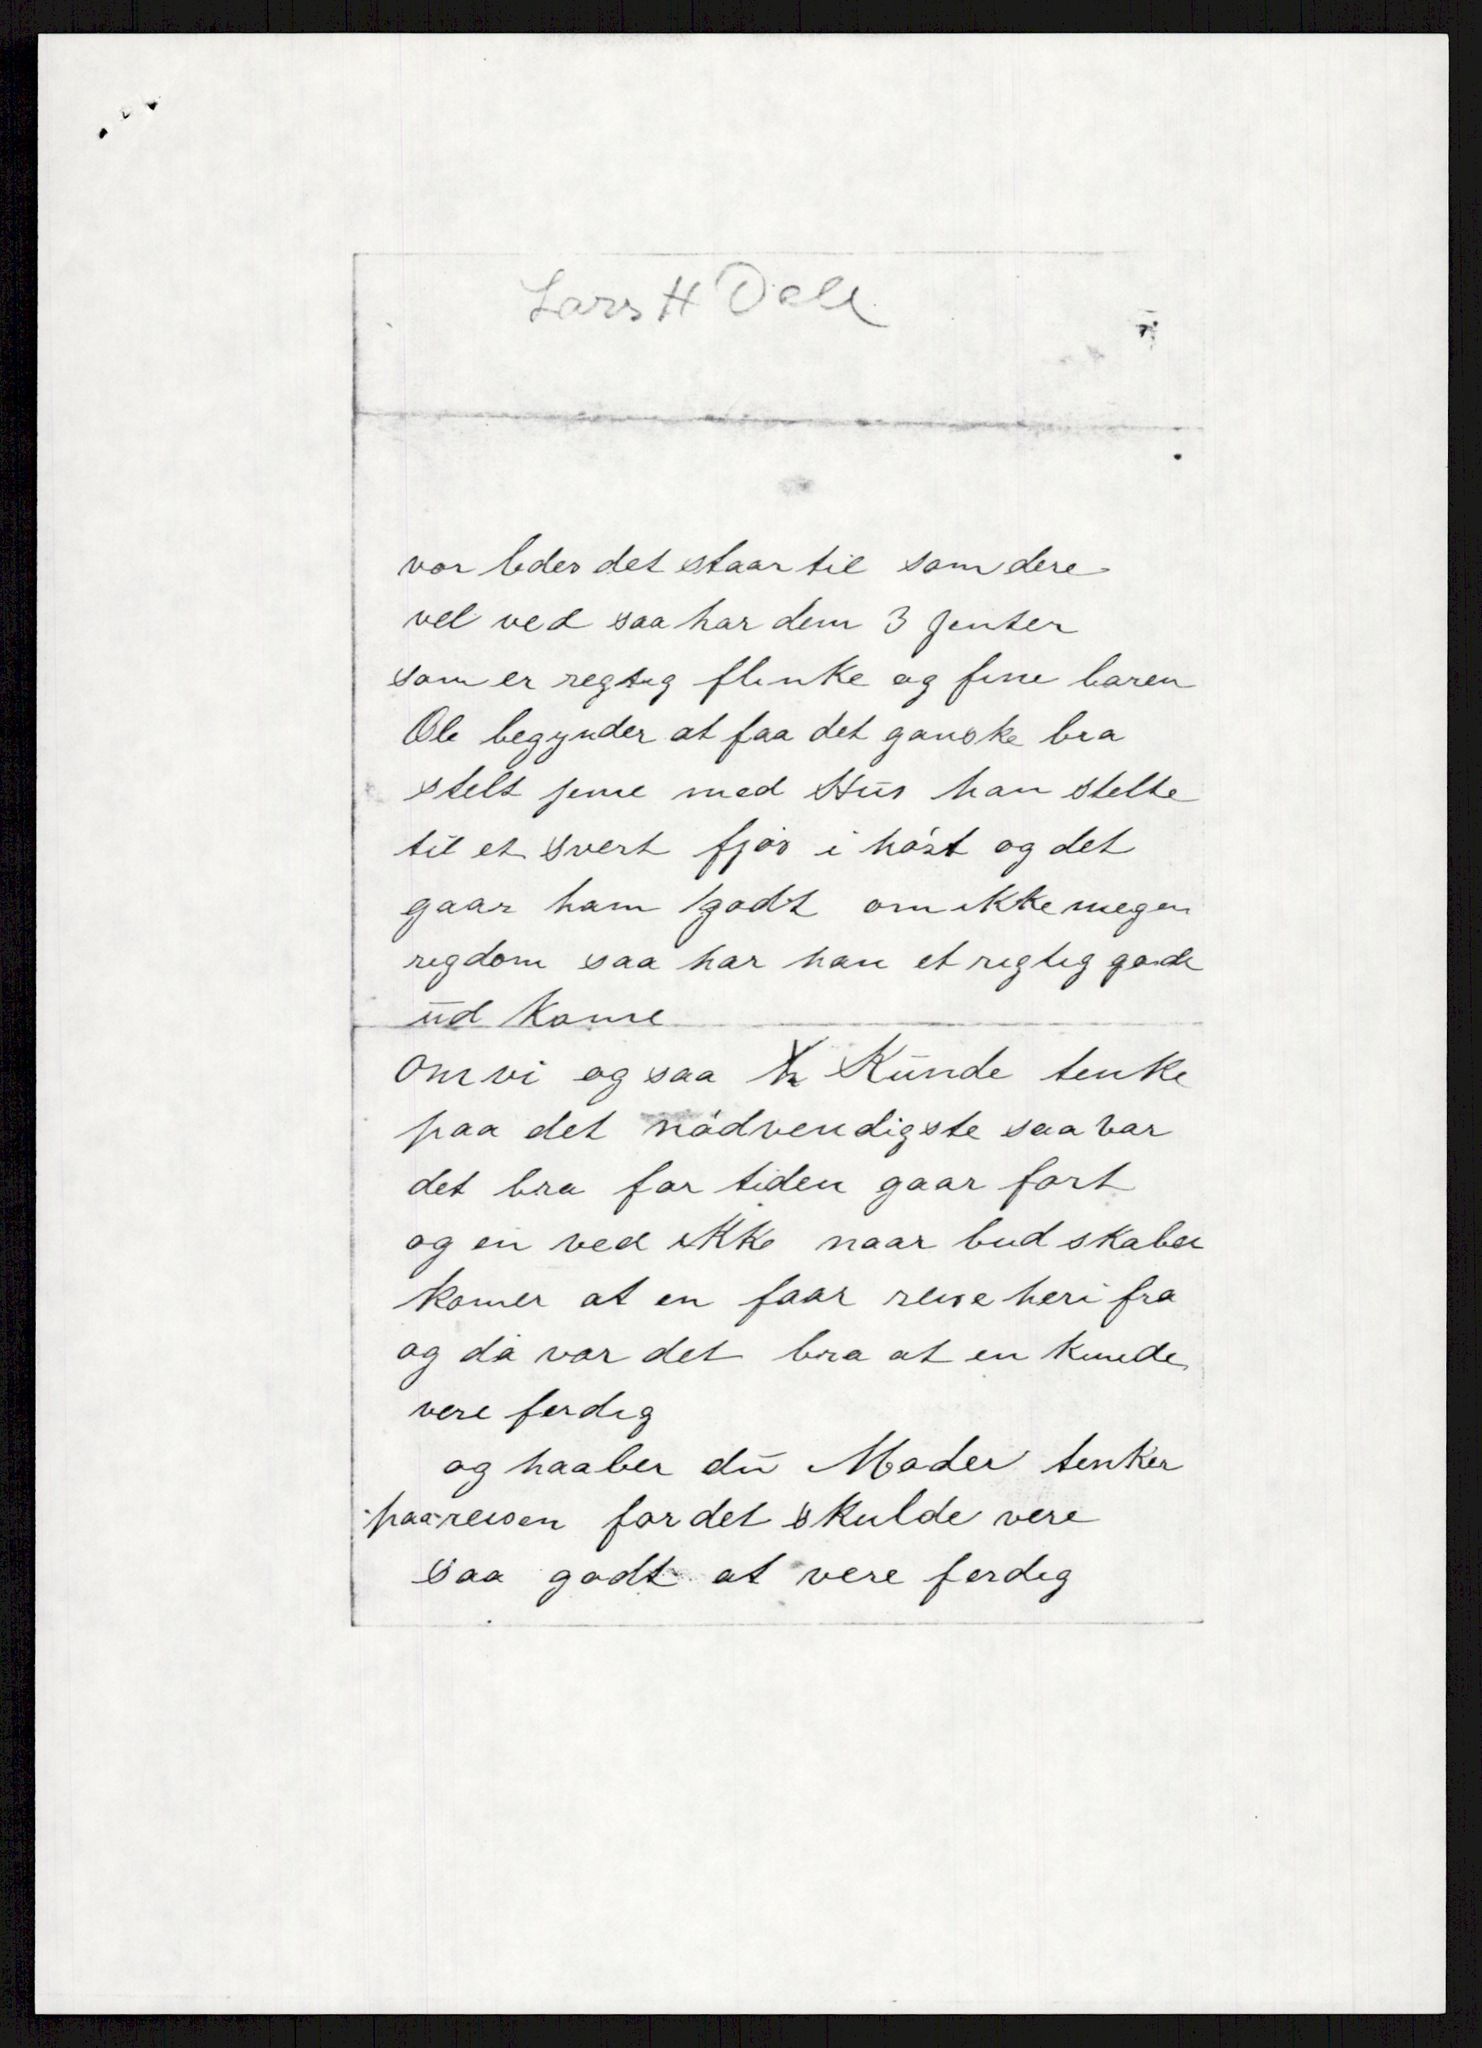 Lars H Dale
vorledes det staar til som dere
vel ved saa har dem 3 jenter
som er regtig flinke og fine baren
Ole begynder at faa det ganske bra
stelt jeme med Hus han stelte
til et svert fjøs i høst og det
gaar ham godt om ikke megen
rigdom saa har han et rigtig gode
ud kome
Om vi og saa Kunde tenke
paa det nødvendigste saa var
det bra for tiden gaar fort
og en ved ikke naar bud skaber
komer at en faar reise heri fra
og da var det bra at en kunde
vere ferdig
og haaber du Moder tenker
paa reisen for det skulde vere
saa godt at vere ferdig